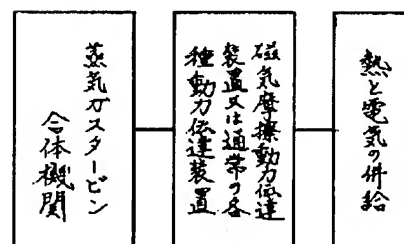 蒸気ガスタービン
合体機関
磁気摩擦動力伝達
装置又は通常の各
種動力伝達装置
熱と電気の供給